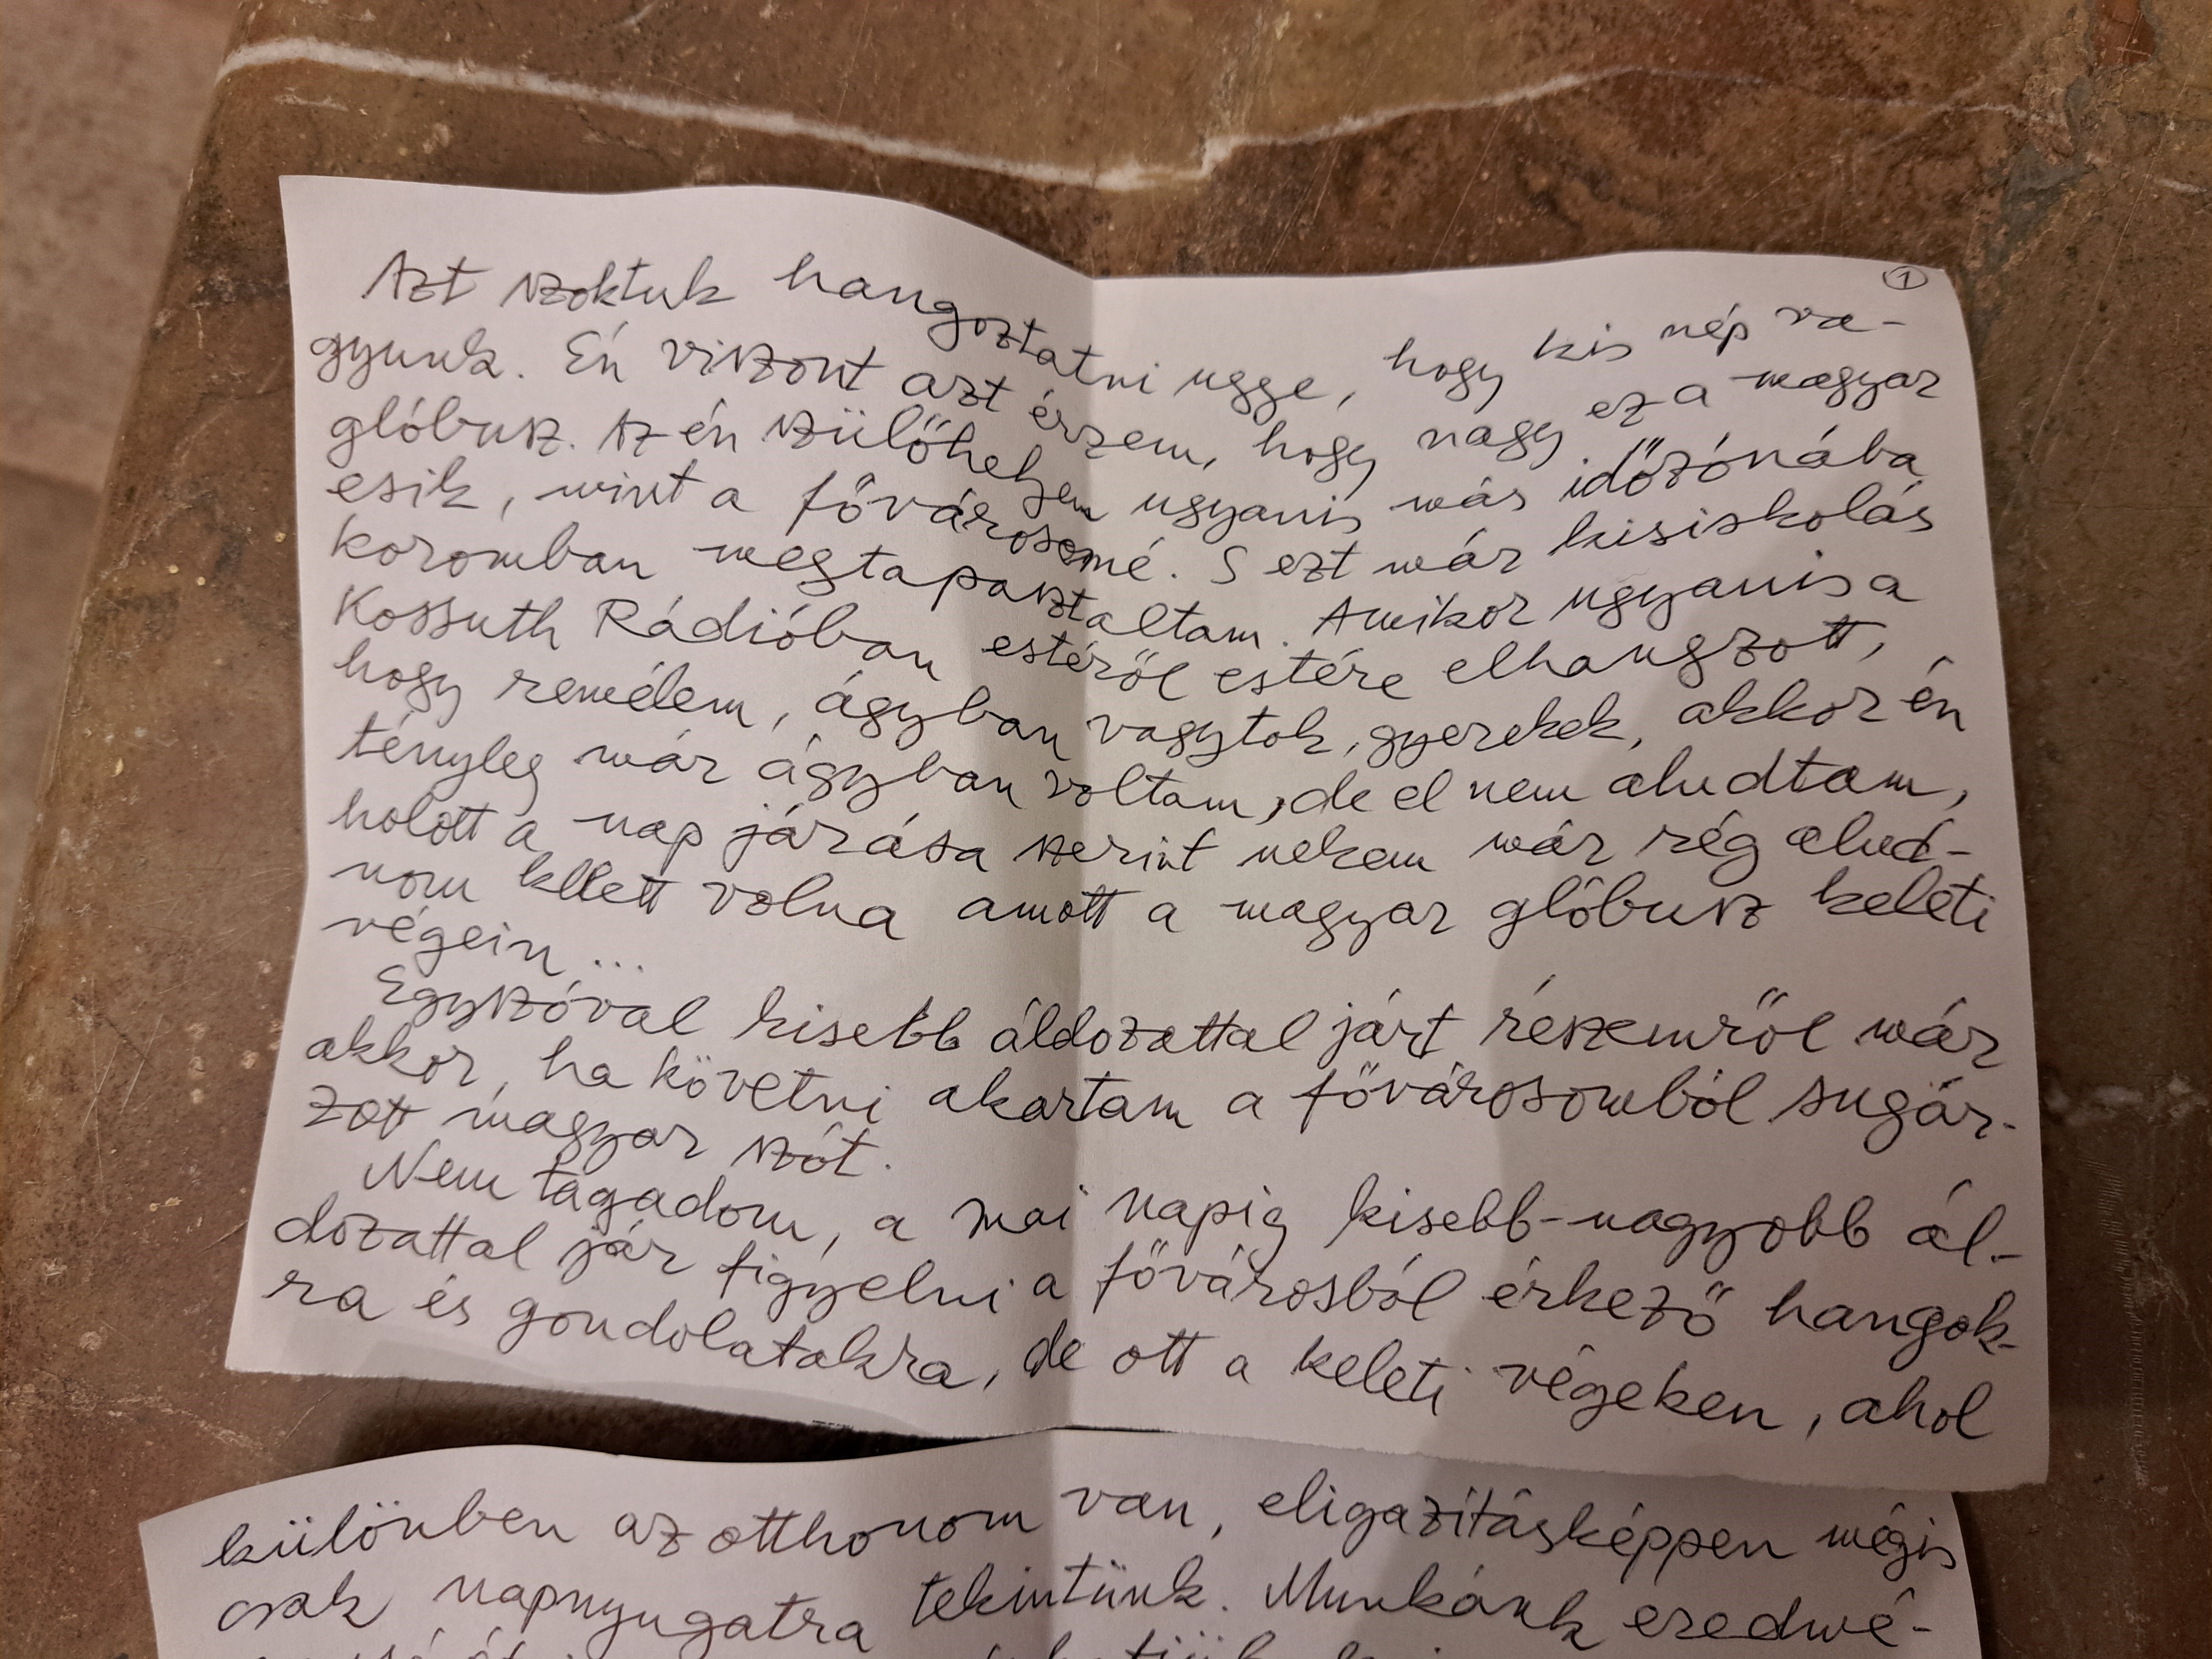 1
Azt szoktuk hangoztatni ugye, hogy kis nép va-
gyunk. Én viszont azt érzem, hogy nagy ez a magyar
glóbusz. Az én szülőhelyem ugyanis más időzónába
esik, mint a fővárosomé. S ezt már kisiskolás
koromban megtapasztaltam. Amikor ugyanis a
Kossuth Rádióban estéről estére elhangzott,
hogy remélem, ágyban vagytok, gyerekek, akkor én
tényleg már ágyban voltam, de el nem aludtam,
holott a nap járása szerint nekem már rég alud-
nom kellett volna amott a magyar glóbusz keleti
végein...
Egyszóval kisebb áldozattal járt részemről már
akkor, ha követni akartam a fővárosomból sugár-
zott magyar szót.
Nem tagadom, a mai napig kisebb-nagyobb ál-
dozattal jár figyelni a fővárosból érkező hangok-
ra és gondolatakra, de ott a keleti végeken, ahol
különben az otthonom van, eligazításképpen mégis
csak napnyugatra tekintünk. Munkánk eredmé-